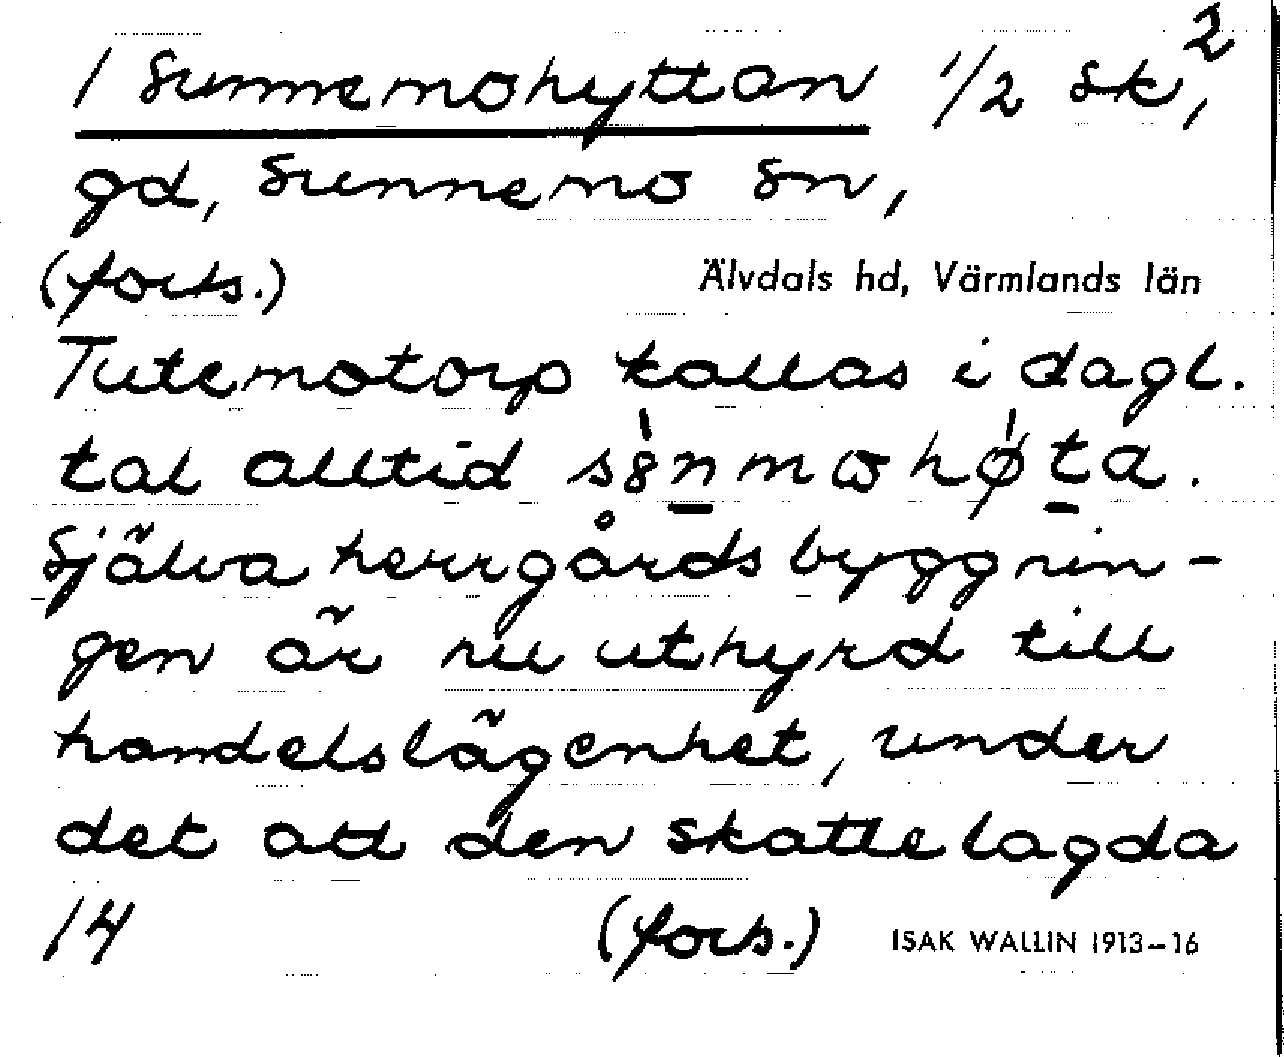 2
1 Sunnemohyttan 1/2 sk,
gd, Sunnemo sn,
(forts.)
Älvdals hd, Värmlands län
Tutemotorp kallas i dagl.
tal alltid
Själva herrgårdsbyggnin-
gen är nu uthyrd till
handelslägenhet, under
det att den skattelagda
14 (forts.)
ISAK WALLIN 1913-16